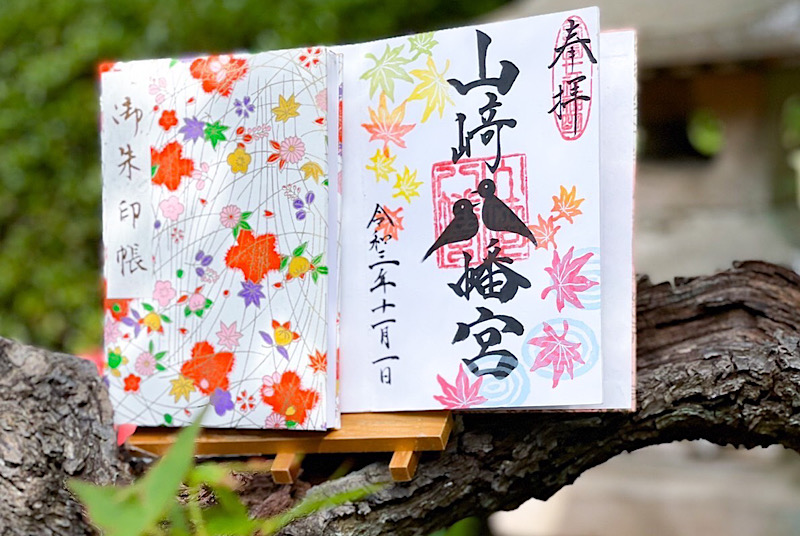 奉拝
山崎八幡宮
令和三年十一月一日
御朱印帳